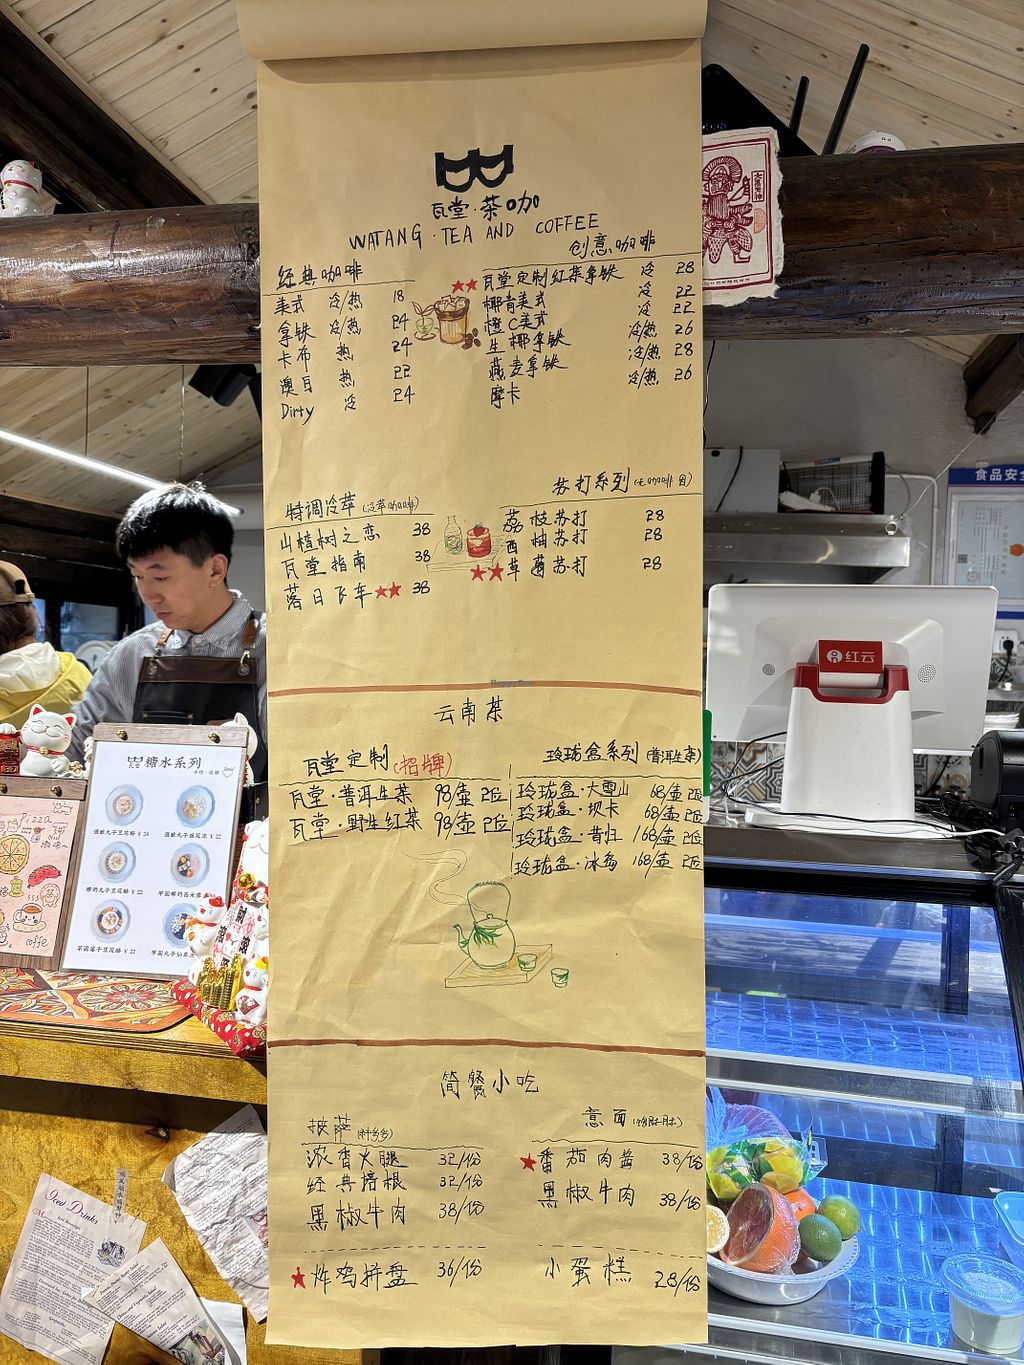 瓦堂·茶咖
WATANG·TEA AND COFFEE
经典咖啡
美式 冷/热 18
拿铁 冷/热 24
卡布 热 24
澳白 热 22
Dirty 冷 24
创意咖啡
瓦堂定制红茶拿铁 冷 28
椰青美式 冷 22
橙C美式 冷 22
生椰拿铁 冷/热 26
燕麦拿铁 冷/热 28
摩卡 冷/热 26
特调冷萃(冷萃咖啡)
山楂树之恋 38
瓦堂指南 38
落日飞车 38
苏打系列(无咖啡因)
荔枝苏打 28
西柚苏打 28
草莓苏打 28
HappyCow
云南茶
瓦堂定制(招牌)
瓦堂·普洱生茶 98/壶 2位
瓦堂·野生红茶 98/壶 2位
玲珑盒系列(普洱生茶)
玲珑盒·大雪山 68/壶 2位
玲珑盒·坝卡 68/壶 2位
玲珑盒·昔归 168/壶 2位
玲珑盒·冰岛 168/壶 2位
简餐小吃
披萨(料多多)
浓香火腿 32/份
经典培根 32/份
黑椒牛肉 38/份
炸鸡拼盘 36/份
意面
番茄肉酱 38/份
黑椒牛肉 38/份
小蛋糕 28/份
瓦堂 糖水系列
酒酿丸子豆花酪 ¥24
酒酿丸子桂花冻 ¥22
椰奶丸子豆花酪 ¥22
芋圆椰奶西米露
芋圆莲子豆花酪 ¥22
芋圆丸子仙草
Pizza
Coffee
Iced Drinks
红云
食品安全